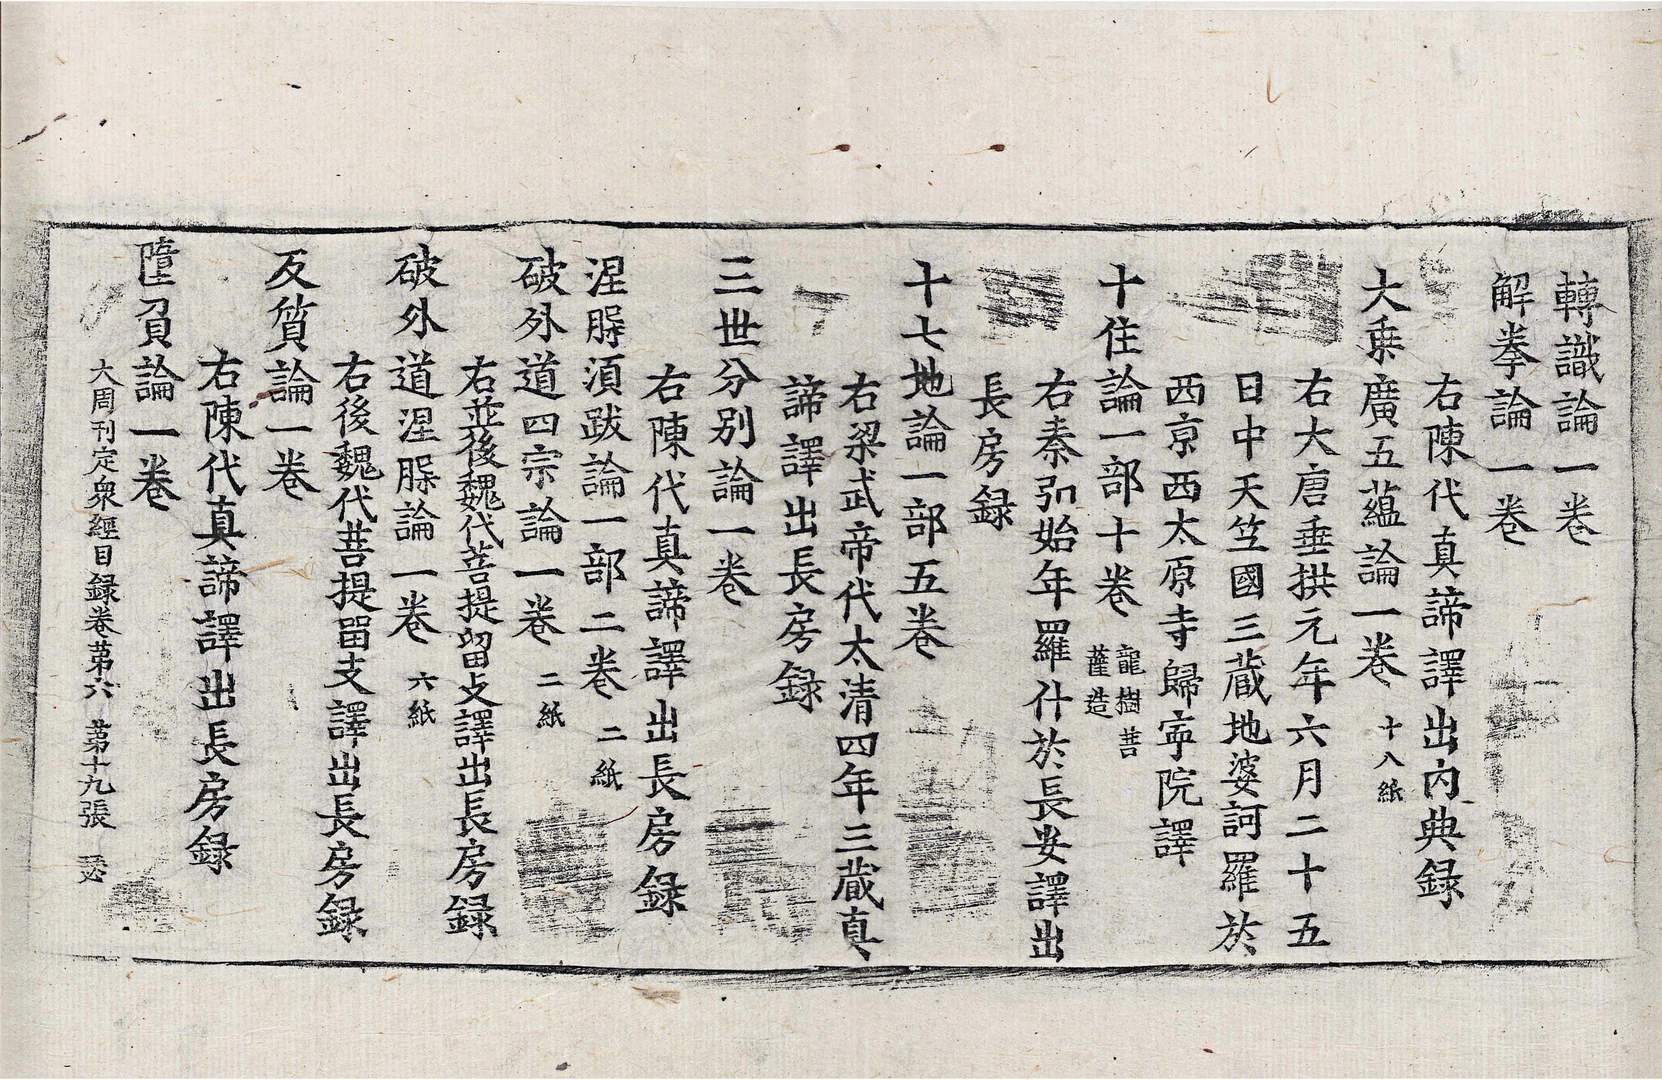 轉識論一卷
解拳論一卷
右陳代真諦譯出內典録
大乗廣五蘊論一卷 十八紙
右大唐垂拱元年六月二十五
日中天竺國三蔵地婆訶羅於
西京西太原寺歸寧院譯
十住論一部十卷 龍樹菩
薩造
右秦弘始年羅什於長安譯出
長房録
十七地論一部五卷
右梁武帝代太清四年三蔵真
諦譯出長房録
三世分別論一卷
右陳代真諦譯出長房録
涅槃須跋論一部二卷 二紙
破外道四宗論一卷 二紙
右並後魏代菩提留支譯出長房録
破外道涅槃論一卷 六紙
右後魏代菩提留支譯出長房録
反質論一卷
右陳代真諦譯出長房録
墮負論一卷
大周刊定衆經目録卷苐六 苐十九張